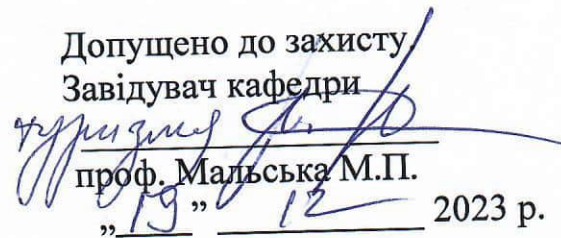 Допущено до захисту
Завідувач кафедри
туризму
проф. Мальська М.П.
„19” 12 2023 р.